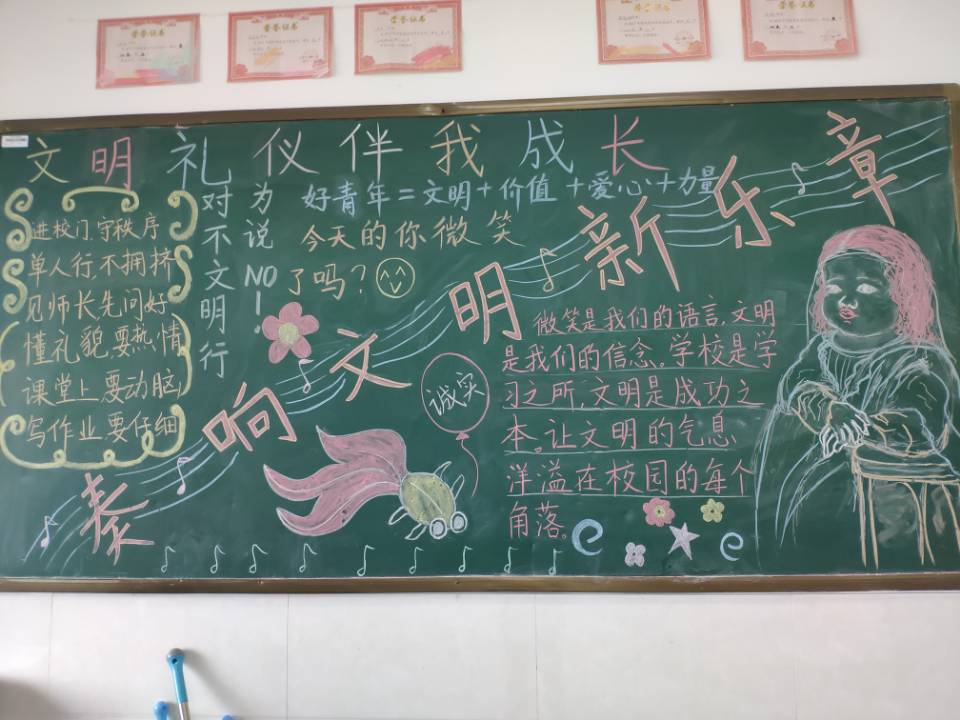 荣誉证书
荣誉证书
荣誉证书
荣誉证书
荣誉证书
文明礼仪伴我成长
进校门,守秩序
单人行,不拥挤
见师长先问好
懂礼貌,要热情
课堂上,要动脑
写作业,要仔细
对不文明行
为说NO!
好青年=文明+价值+爱心+力量
今天的你微笑
了吗?
奏响文明新乐章
诚实
微笑是我们的语言,文明
是我们的信念。学校是学
习之所,文明是成功之
本。让文明的气息
洋溢在校园的每个
角落。